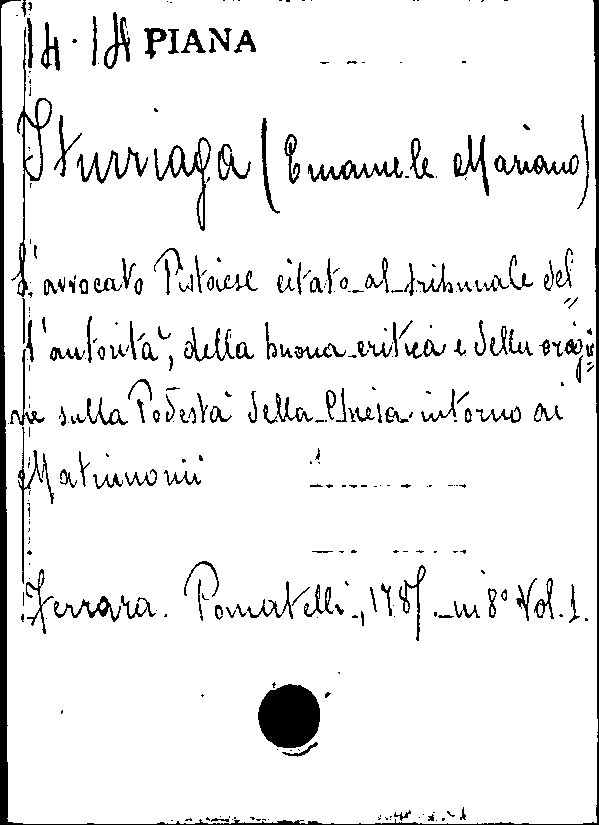 14.14 PIANA
Iturriaga (Emanuele Mariano)
L'avvocato Pistoiese citato al tribunale del=
l'autorità, della buona critica e della ragio=
ne sulla Podestà della Chiesa intorno ai
Matrimonii
Ferrara. Pomatelli, 1787. in 8° Vol. 1.